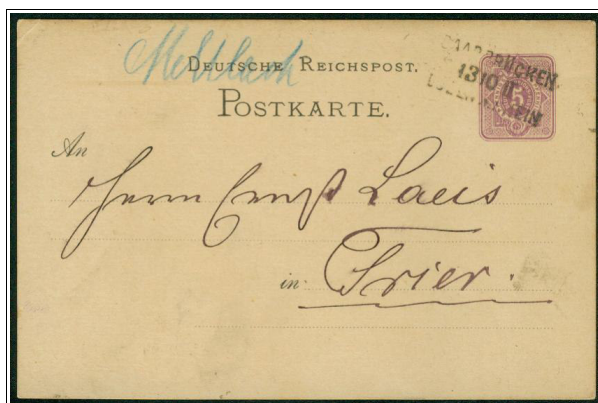 Mettlach
DEUTSCHE REICHSPOST.
SAARBRÜCKEN
13 10 II
5
POSTKARTE.
An
Herrn Ernst Laeis
in Trier.